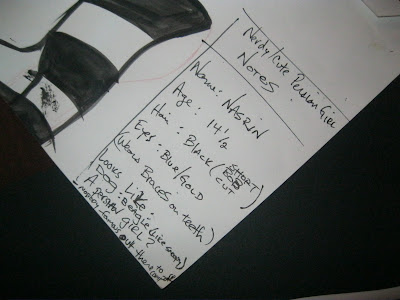 Nerdy/Cute Persian Girl
NOTES:
Name: NASRIN
Age: 14½
Hair: BLACK (SHORT BOB CUT
Eyes: BLUE/GOLD
(Wears BRACES on teeth)
Looks Like:
Dog: BEAGLE (Like Snoopy)
A PERSIAN GIRL?
out there